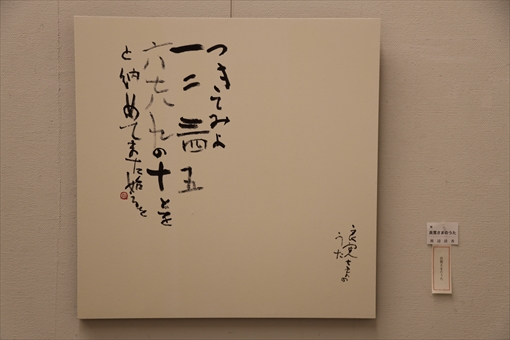 つきてみよ
一二三四五
六七八九の十
十とを
と納めてまた始るを
良寛さまの
うた
良寛さまのうた